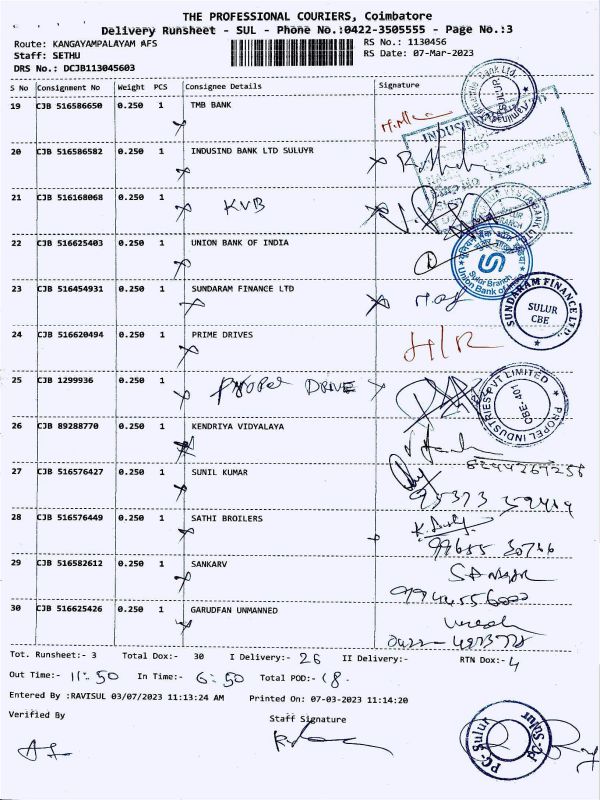 THE PROFESSIONAL COURIERS, Coimbatore
Delivery Runsheet - SUL - Phone No.:0422-3505555 - Page No.:3
Route: KANGAYAMPALAYAM AFS RS No.: 1130456
Staff: SETHU RS Date: 07-Mar-2023
DRS No.: DCJB113045603
S No Consignment No Weight PCS Consignee Details Signature
19 CJB 516586650 0.250 1 TMB BANK
20 CJB 516586582 0.250 1 INDUSIND BANK LTD SULUYR
21 CJB 516168068 0.250 1 KVB
22 CJB 516625403 0.250 1 UNION BANK OF INDIA
Sulur Branch
Union Bank of India
23 CJB 516454931 0.250 1 SUNDARAM FINANCE LTD
SUNDARAM FINANCE LTD.
SULUR
CBE
24 CJB 516620494 0.250 1 PRIME DRIVES H/R
25 CJB 1299936 0.250 1 PROPEL DRIVE
PROPEL INDUSTRIES PVT LIMITED
CBE-401
26 CJB 89288770 0.250 1 KENDRIYA VIDYALAYA
27 CJB 516576427 0.250 1 SUNIL KUMAR
28 CJB 516576449 0.250 1 SATHI BROILERS
29 CJB 516582612 0.250 1 SANKARV
30 CJB 516625426 0.250 1 GARUDFAN UNMANNED
Tot. Runsheet:- 3 Total Dox:- 30 I Delivery:- 26 II Delivery:- RTN Dox:- 4
Out Time:- 11:50 In Time:- 6:50 Total POD:- 18.
Entered By :RAVISUL 03/07/2023 11:13:24 AM Printed On: 07-03-2023 11:14:20
Verified By Staff Signature
PC-Sulur
PC-Sulur